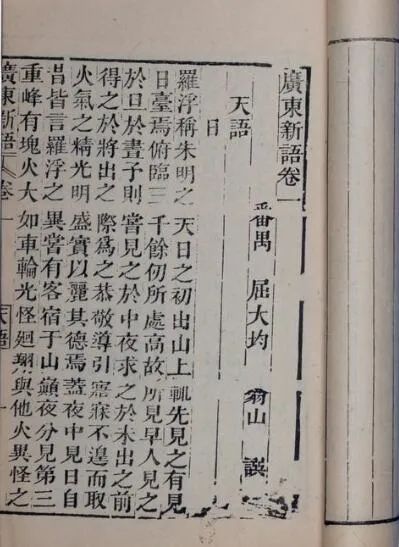 廣東新語卷一
番禺 屈大均 翁山 譔
天語
日
羅浮稱朱明之天日之初出山上輒先見之有見
日臺焉俯臨三千餘仞所處高故所見早人見之
於旦於晝子則嘗見之於中夜求之於未出之前
得之於將出之際爲之恭敬導引寤寐不遑而取
火氣之精光明盛實以麗其德焉蓋夜中見日自
昔皆言羅浮之異嘗有客宿于山巔夜分見第三
重峰有塊火大如車輪光怪迴翔與他火異怪之
廣東新語 卷一 天語 一